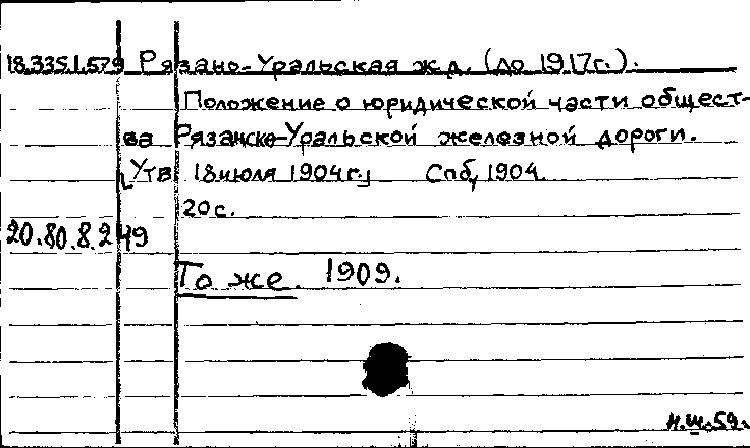 18.335.1.579 Рязано-Уральская ж.д. (до 1917г.).
Положение о юридической части общест-
ва Рязанско-Уральской железной дороги.
[Утв. 18 июля 1904г.] Спб, 1904.
20 с.
20.80.8.249
То же. 1909.
н.ш.59.